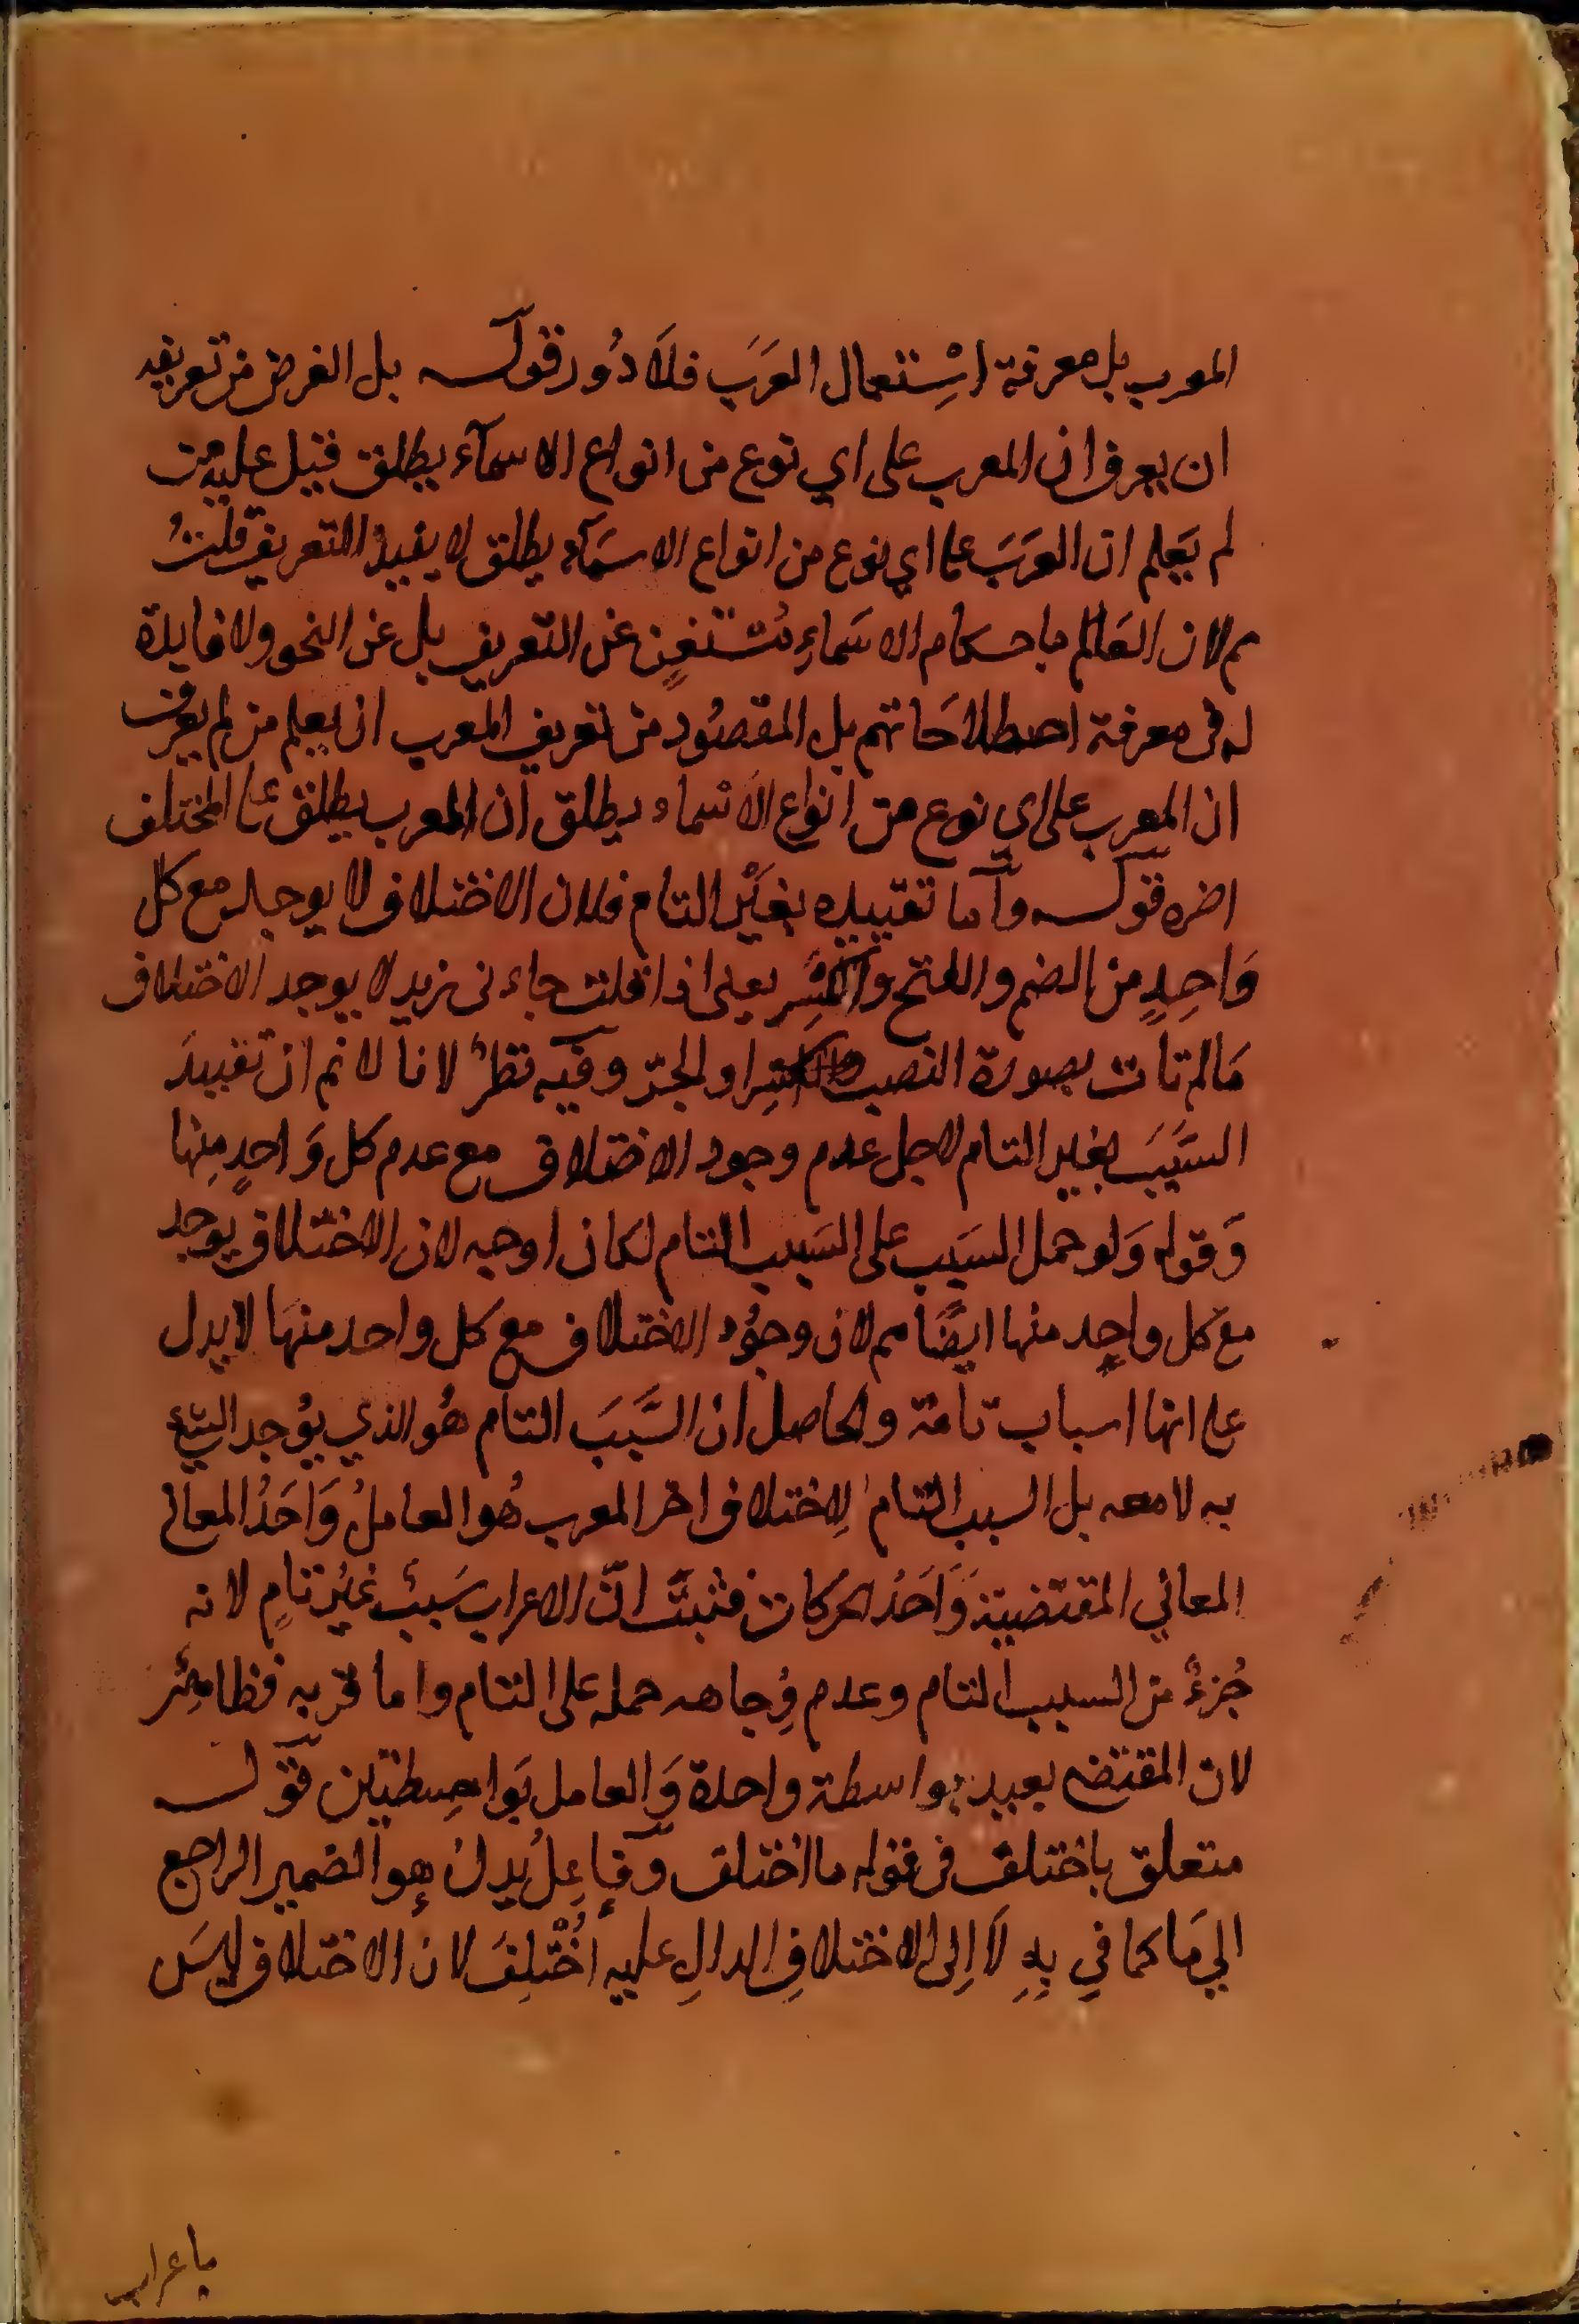 المعرب بل معرفة اسْتعمال العَرَب فلاَ دُور قولـــه بل الغرض من تعريفه
ان يعرف ان المعرب على اي نوع من انواع الاسمآء يطلق قيل عليه من
لم يَعلم ان العَرَب على اي نوع من انواع الاسمَآء يطلق لا يفيدُ التعريف قلتُ
مم لان العَالم باحكام الاسَماءِ مُستغنٍ عن التعريف بل عن النحو ولا فايدة
له فى معرفة اصطلاحَاتهم بل المقصُود من تعريف المعرب ان يعلم من لم يعرف
ان المعرب على اي نوع من انواع الاَسْماء يطلق ان المعرب يطلق على المختلف
اخره قولـــه وآما تقييده بغَيْر التام فلان الاختلاف لا يوجد مع كل
وَاحِدٍ من الضم والفتح والكسر يعنى اذا قلت جاءنى زيد لا يوجد الاختلاف
مَا لم تات بصورة النصب او الجرّ وفيه نظرٌ لانا لا نم ان تقييدَ
السَبَبَ بغير التام لاجل عدم وجود الاختلاف مع عدم كل وَاحدٍ مِنها
وَقوله وَلو حمل السَبَب على السَبب التام لكان اوجه لان الاختلاف يوجد
مع كل واحِد منها ايضًا مم لان وجُود الاختلاف مع كل واحد منهَا لا يدل
على انها اسباب تامة والحاصل ان السَّبَبَ التام هُو الذي يوُجد الشيء
به لا معه بل السبب التام لِاختلاف اخر المعرب هُو العاملُ وَاَحَدُ المعانى
المعاني المقتضية وَاَحَدُ الحركات فثبتَ انّ الاعراب سَبَبٌ غَيْر تامٍ لانه
جُزءٌ من السبب التام وعدم وِجاهه حمله على التام واما قربه فظاهِر
لان المقتضى بعيد بواسطة واحدة وَالعامل بَواسِطتين قولـــه
متعلق باختلف فى قوله ما اختلف وفاعِلُ يدلُ هو الضمير الراجع
الي مَا كما فيِ بِهِ لاَ اِلى الاختلافِ الدالِ عليه اُخْتُلِفَ لان الاختلاف ليسَ
باعراب